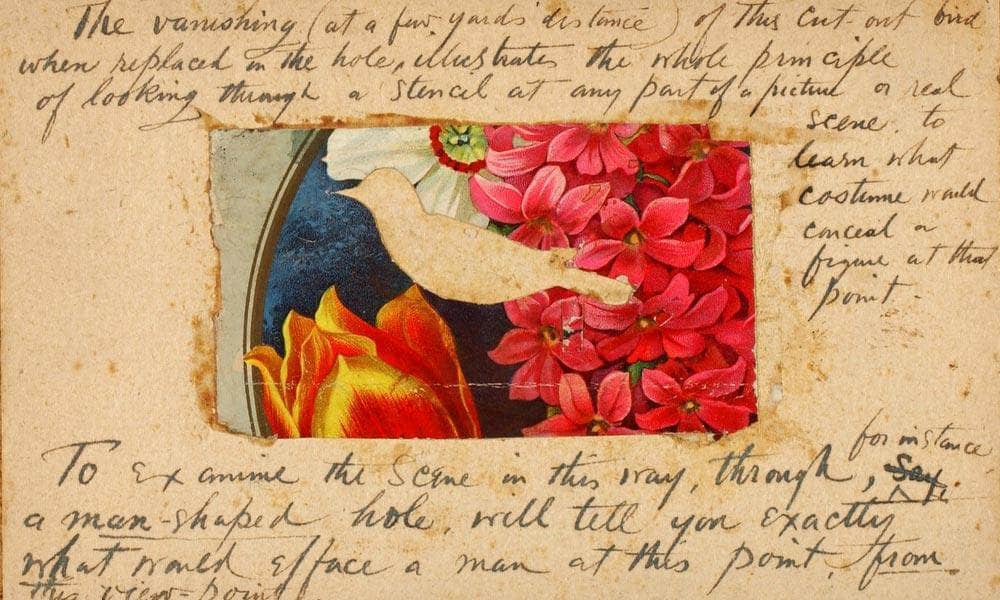 The vanishing (at a few yards' distance) of this cut-out bird
when replaced in the hole, illustrates the whole principle
of looking through a stencil at any part of a picture or real
scene to
learn what
costume would
conceal a
figure at that
point.
To examine the scene in this way, through, for instance,
a man-shaped hole, will tell you exactly
what would efface a man at this point, from
this view-point.